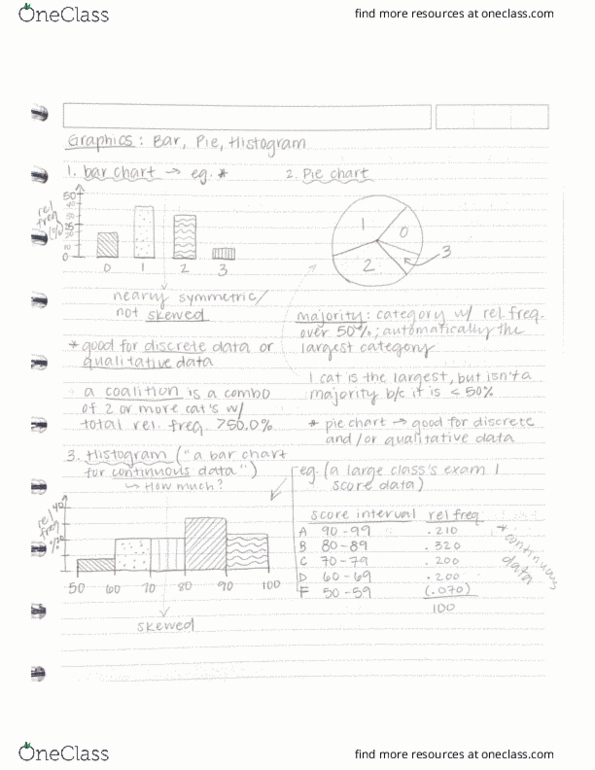 OneClass
find more resources at oneclass.com
Graphics: Bar, Pie, Histogram
1. bar chart → eg. *
2. Pie chart
rel freq (%)
50
0
0 1 2 3
1
0
2
3
nearly symmetric/
not skewed
majority: category w/ rel. freq.
over 50%; automatically the
largest category
* good for discrete data or
qualitative data
1 cat is the largest, but isn't a
majority b/c it is < 50%
a coalition is a combo
of 2 or more cat's w/
total rel. freq. >50.0%
* pie chart → good for discrete
and/or qualitative data
3. Histogram ("a bar chart
for continuous data")
↳ How much?
eg. (a large class's exam 1
score data)
rel freq %
40
20
50 60 70 80 90 100
skewed
score interval rel freq
A 90-99 .210
B 80-89 .320
C 70-79 .200
D 60-69 .200
F 50-59 (.070)
100
* continuous
data
OneClass
find more resources at oneclass.com